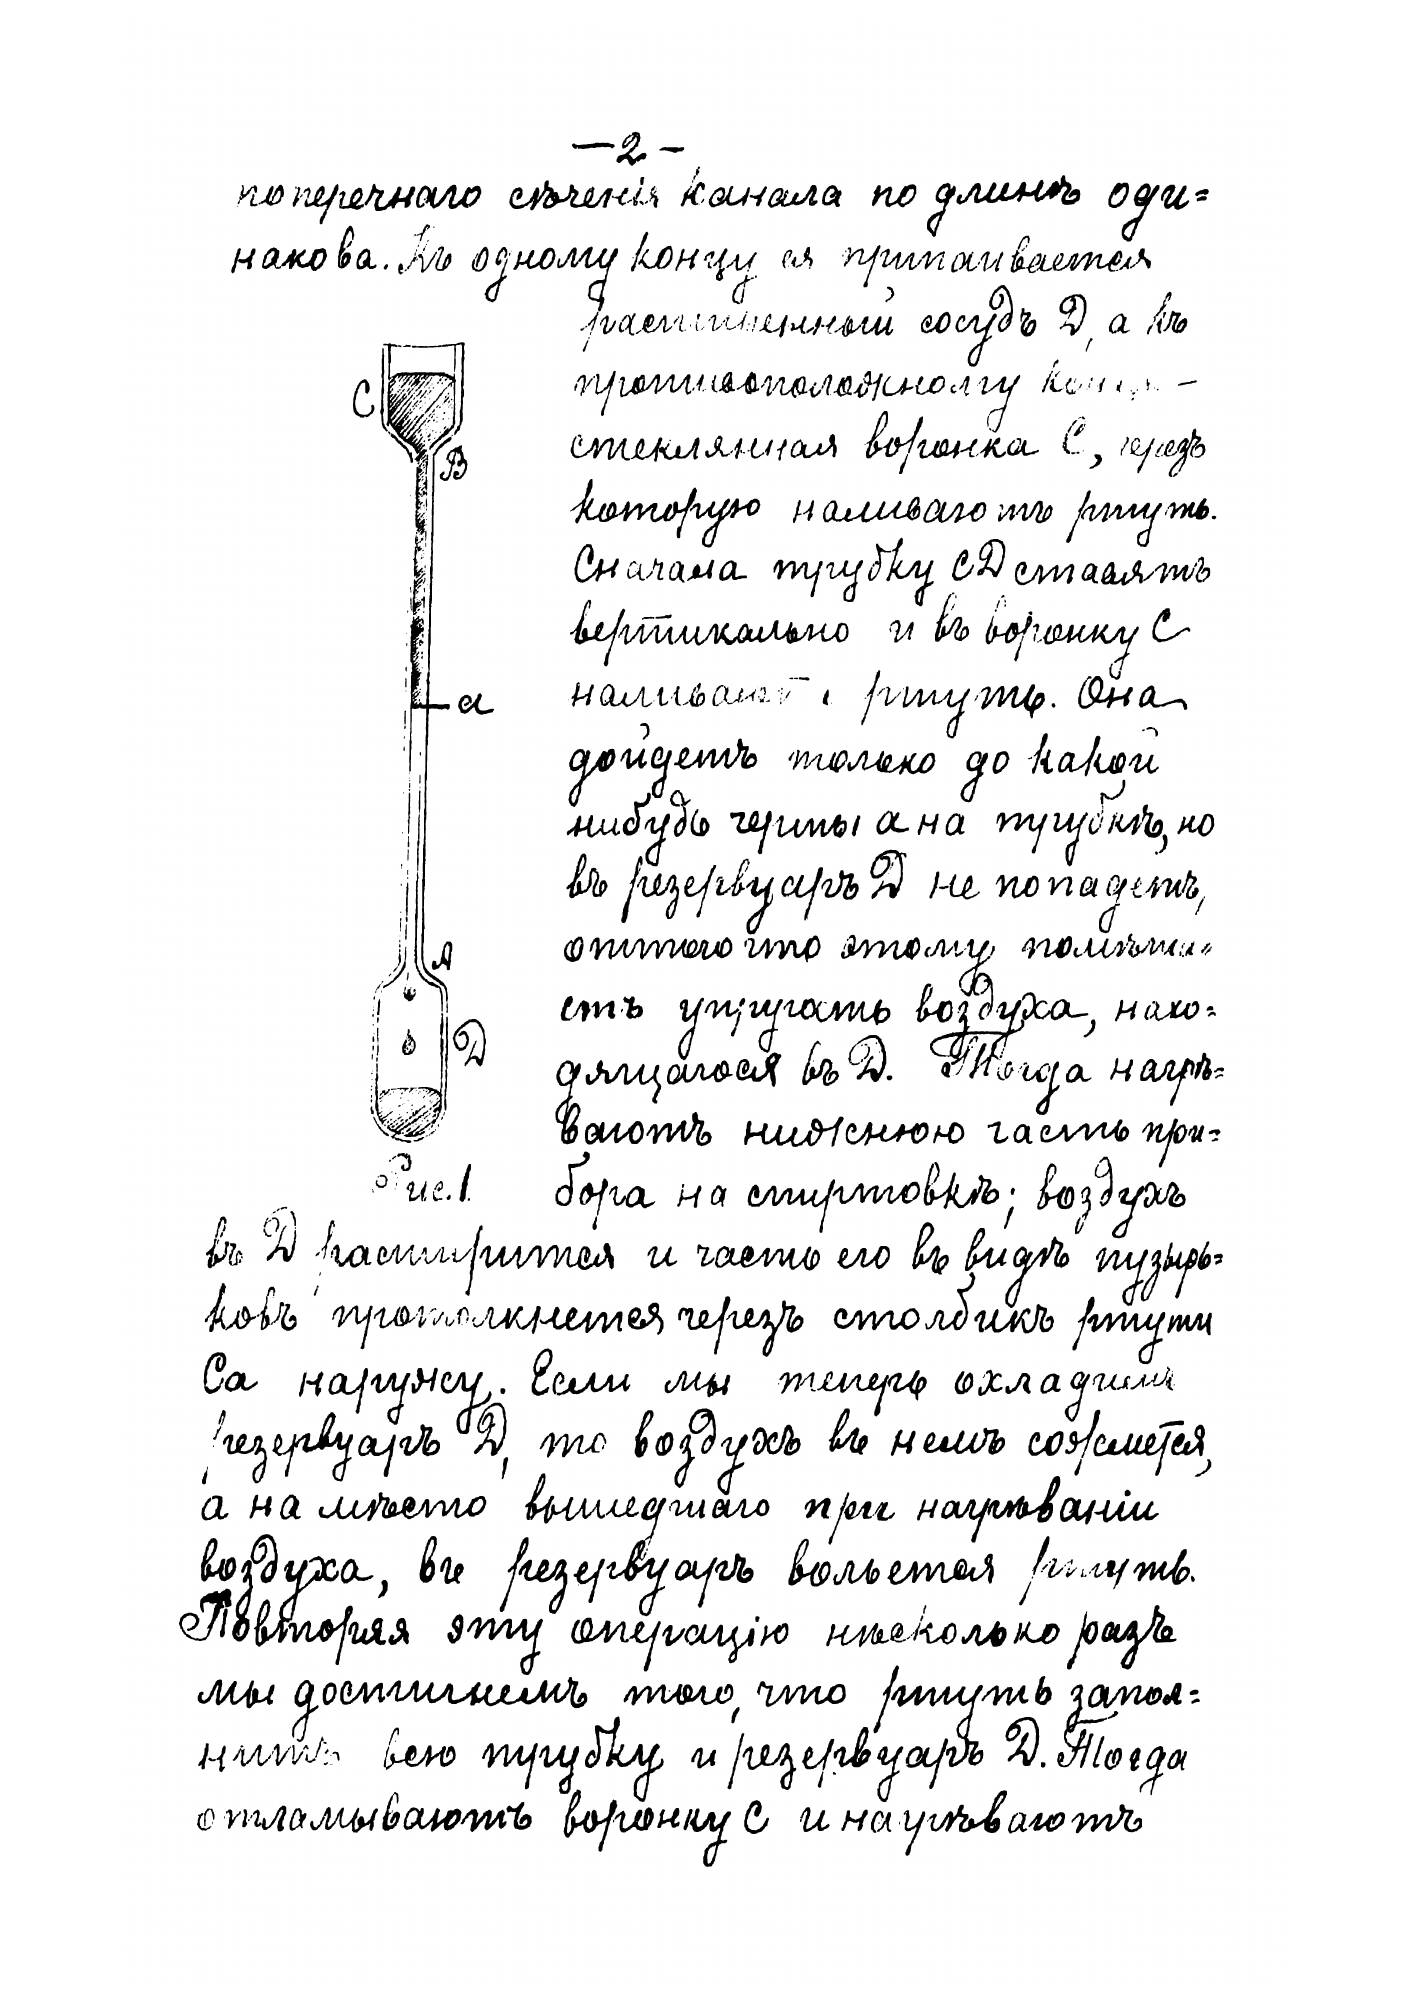 — 2 —
поперечнаго сѣченія канала по длинѣ оди=
накова. Къ одному концу ея припаивается
расширенный сосудъ D, а къ
противоположному концу —
стеклянная воронка C, черезъ
которую наливаютъ ртуть.
Сначала трубку CD ставятъ
вертикально и въ воронку C
наливаютъ ртуть. Она
дойдетъ только до какой
нибудь черты a на трубкѣ, но
въ резервуаръ D не попадетъ,
оттого что этому помѣша=
етъ упругость воздуха, нахо=
дящагося въ D. Тогда нагрѣ=
ваютъ нижнюю часть при=
бора на спиртовкѣ; воздухъ
въ D расширится и часть его въ видѣ пузырь=
ковъ протолкнется черезъ столбикъ ртути
Ca наружу. Если мы теперь охладимъ
резервуаръ D, то воздухъ въ немъ сожмется,
а на мѣсто вышедшаго при нагрѣваніи
воздуха, въ резервуаръ вольется ртуть.
Повторяя эту операцію нѣсколько разъ
мы достигнемъ того, что ртуть запол=
нитъ всю трубку и резервуаръ D. Тогда
отламываютъ воронку C и нагрѣваютъ
C
B
a
A
D
Рис. 1.